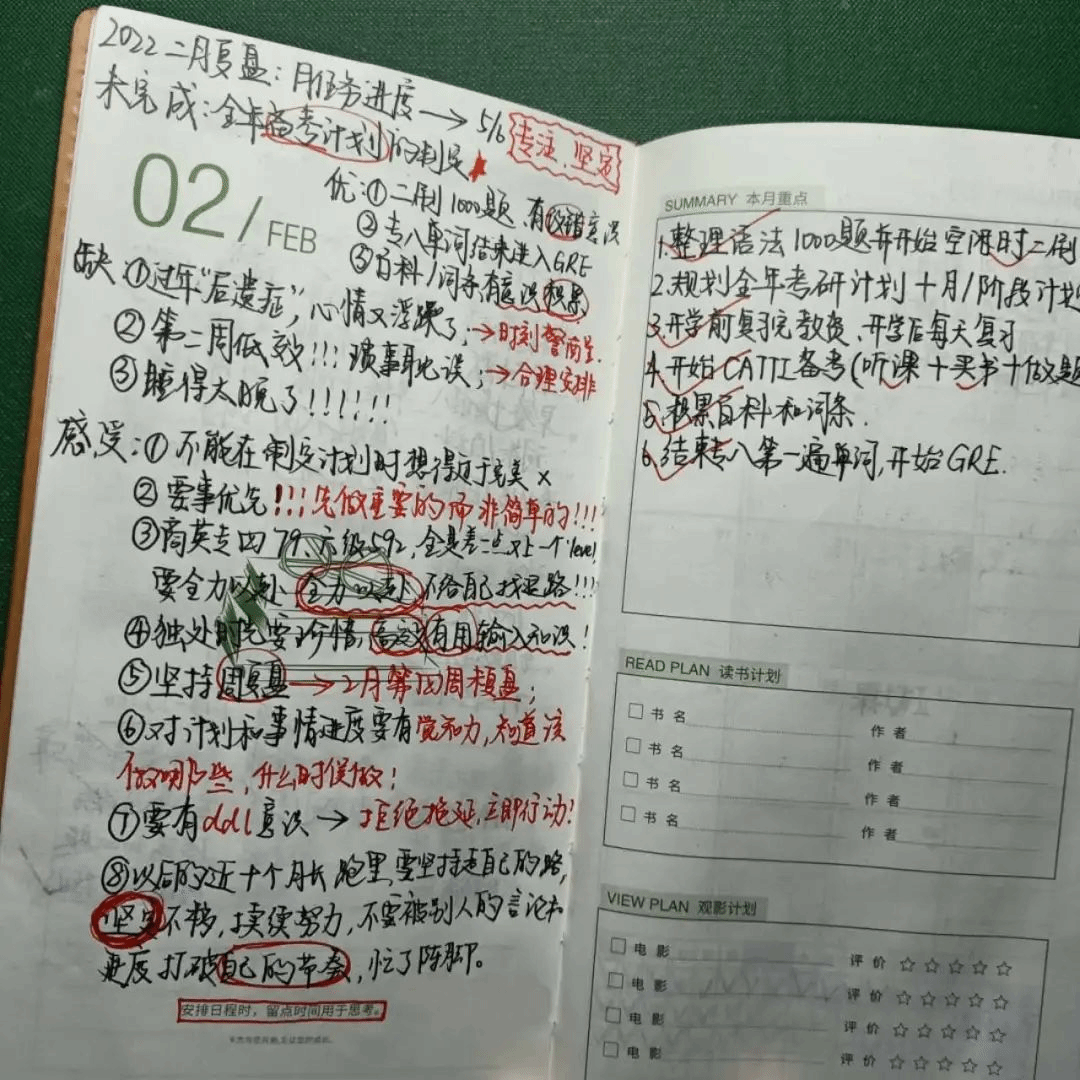 2022 二月复盘:月任务进度 → 5/6 专注、坚定
未完成:全年备考计划的制定
02/FEB
优:①二刷1000题、有改错意识
②专八单词结束进入GRE
③百科/词条有意识积累
缺:①过年"后遗症",心情又浮躁了;→时刻警惕
②第二周低效!!!琐事耽误;→合理安排
③睡得太晚了!!!!!!
感受:①不能在制定计划时想得过于完美×
②要事优先!!!先做重要的而非简单的!!!
③商英专四79、六级592,全是差一点又上一个level,
要全力以赴、全力以赴,不给自己找退路!!!
④独处时光要珍惜,高效有用输入知识!
⑤坚持周复盘→2月第四周模盘;
⑥对计划和事情进度要有觉知力,知道该
做哪些,什么时候做!
⑦要有ddl意识→拒绝拖延,立即行动!
⑧以后的近十个月长跑里,要坚持走自己的路,
坚定不移,持续努力,不要被别人的言论和
进度打破自己的节奏,忙了阵脚。
安排日程时,留点时间用于思考。
SUMMARY 本月重点
1.整理语法1000题并开始空闲时二刷
2.规划全年考研计划+月/阶段计划
3.开学前复习完教资、开学后每天复习
4.开始CATTI备考(听课+买书+做题
5.积累百科和词条.
6.结束专八第一遍单词,开始GRE.
READ PLAN 读书计划
书名 作者
书名 作者
书名 作者
书名 作者
VIEW PLAN 观影计划
电影 评价 ☆☆☆☆☆
电影 评价 ☆☆☆☆☆
电影 评价 ☆☆☆☆☆
电影 评价 ☆☆☆☆☆